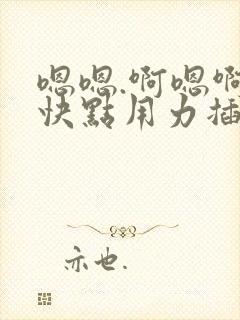 嗯嗯.啊嗯啊
快點用力插
亦也.